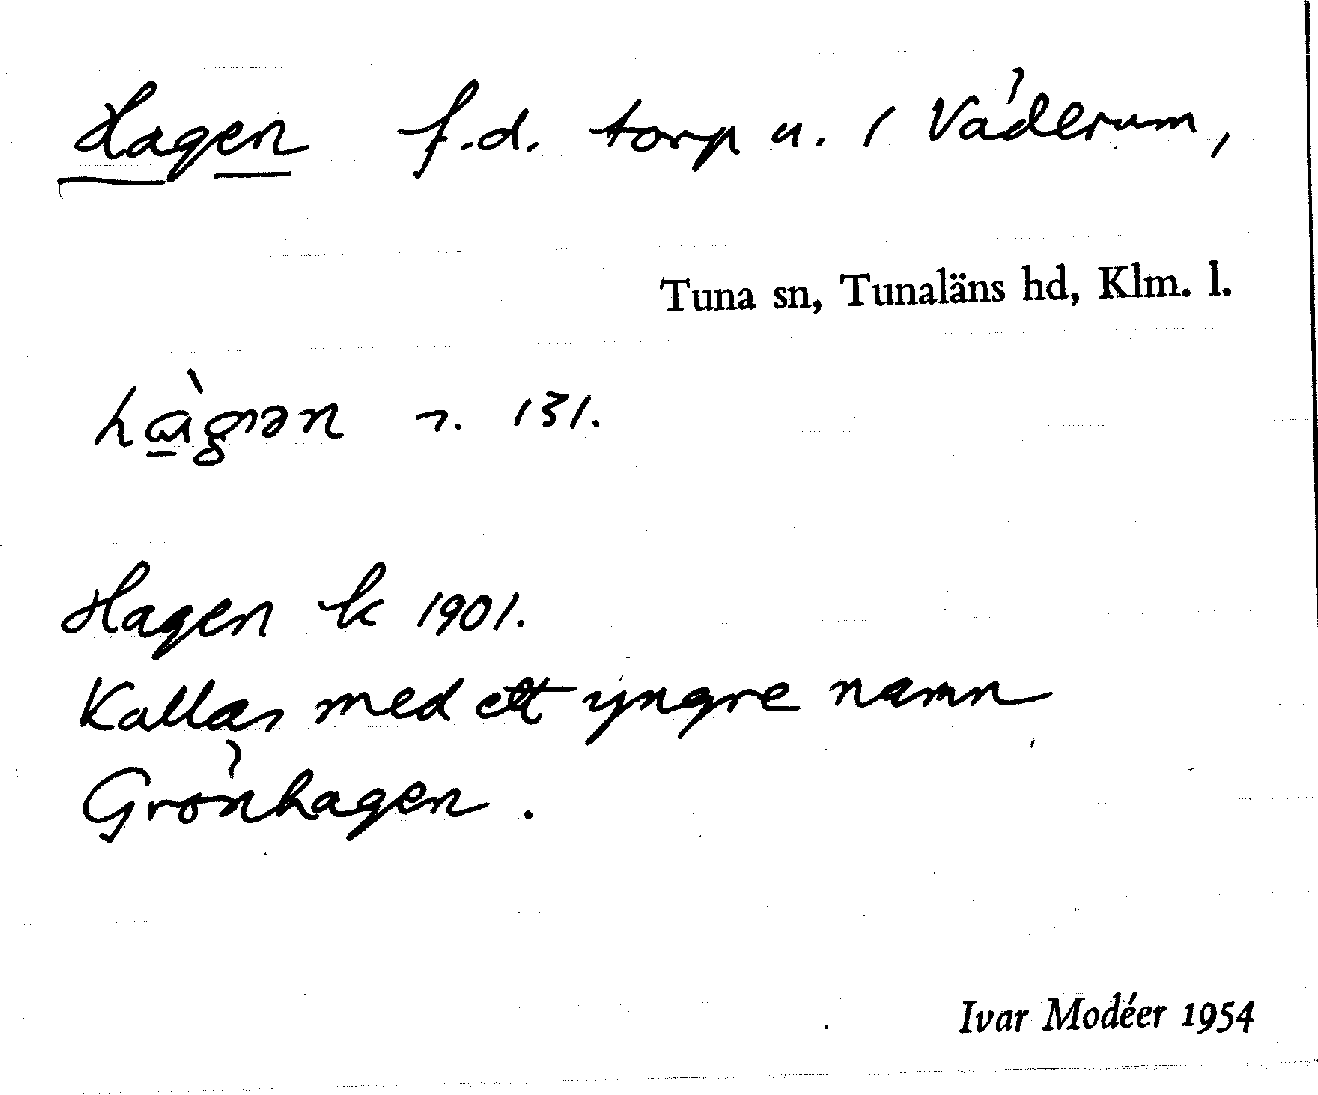 Hagen f.d. torp u. 1 Väderum,
Tuna sn, Tunaläns hd, Klm. l.
hàgən 131.
Hagen k 1901.
Kallas med ett yngre namn
Grönhagen.
Ivar Modéer 1954